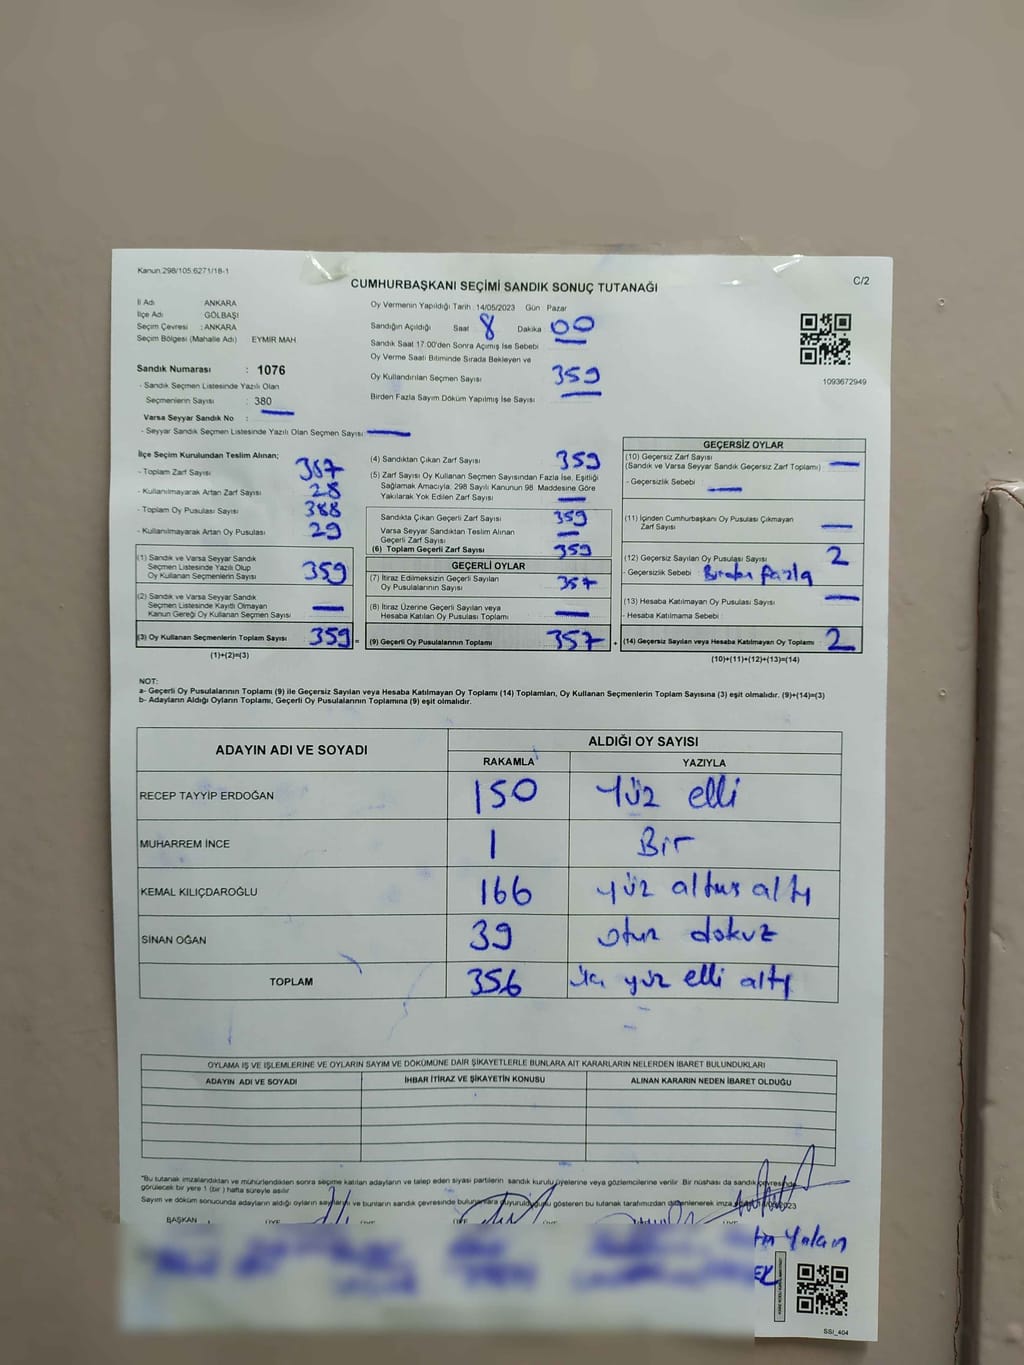 Kanun:298/105:6271/18-1
CUMHURBAŞKANI SEÇİMİ SANDIK SONUÇ TUTANAĞI
C/2
İl Adı ANKARA
İlçe Adı GÖLBAŞI
Seçim Çevresi : ANKARA
Seçim Bölgesi (Mahalle Adı) EYMİR MAH
Sandık Numarası : 1076
- Sandık Seçmen Listesinde Yazılı Olan
Seçmenlerin Sayısı : 380
Varsa Seyyar Sandık No :
- Seyyar Sandık Seçmen Listesinde Yazılı Olan Seçmen Sayısı
Oy Vermenin Yapıldığı Tarih 14/05/2023 Gün Pazar
Sandığın Açıldığı Saat 8 Dakika 00
Sandık Saat 17.00'den Sonra Açımış İse Sebebi
Oy Verme Saati Bitiminde Sırada Bekleyen ve
Oy Kullandırılan Seçmen Sayısı 359
Birden Fazla Sayım Döküm Yapılmış İse Sayısı
1093672949
İlçe Seçim Kurulundan Teslim Alınan;
- Toplam Zarf Sayısı 387
- Kullanılmayarak Artan Zarf Sayısı 28
- Toplam Oy Pusulası Sayısı 388
- Kullanılmayarak Artan Oy Pusulası 29
(1) Sandık ve Varsa Seyyar Sandık
Seçmen Listesinde Yazılı Olup
Oy Kullanan Seçmenlerin Sayısı 359
(2) Sandık ve Varsa Seyyar Sandık
Seçmen Listesinde Kayıtlı Olmayan
Kanun Gereği Oy Kullanan Seçmen Sayısı
(3) Oy Kullanan Seçmenlerin Toplam Sayısı 359 =
(1)+(2)=(3)
(4) Sandıktan Çıkan Zarf Sayısı 359
(5) Zarf Sayısı Oy Kullanan Seçmen Sayısından Fazla İse, Eşitliği
Sağlamak Amacıyla, 298 Sayılı Kanunun 98. Maddesine Göre
Yakılarak Yok Edilen Zarf Sayısı
Sandıkta Çıkan Geçerli Zarf Sayısı 359
Varsa Seyyar Sandıktan Teslim Alınan
Geçerli Zarf Sayısı
(6) Toplam Geçerli Zarf Sayısı 359
GEÇERLİ OYLAR
(7) İtiraz Edilmeksizin Geçerli Sayılan
Oy Pusulalarının Sayısı 357
(8) İtiraz Üzerine Geçerli Sayılan veya
Hesaba Katılan Oy Pusulası Toplamı
(9) Geçerli Oy Pusulalarının Toplamı 357 +
GEÇERSİZ OYLAR
(10) Geçersiz Zarf Sayısı
(Sandık ve Varsa Seyyar Sandık Geçersiz Zarf Toplamı)
- Geçersizlik Sebebi
(11) İçinden Cumhurbaşkanı Oy Pusulası Çıkmayan
Zarf Sayısı
(12) Geçersiz Sayılan Oy Pusulası Sayısı 2
- Geçersizlik Sebebi : Birden fazla
(13) Hesaba Katılmayan Oy Pusulası Sayısı
- Hesaba Katılmama Sebebi :
(14) Geçersiz Sayılan veya Hesaba Katılmayan Oy Toplamı 2
(10)+(11)+(12)+(13)=(14)
NOT:
a- Geçerli Oy Pusulalarının Toplamı (9) ile Geçersiz Sayılan veya Hesaba Katılmayan Oy Toplamı (14) Toplamları, Oy Kullanan Seçmenlerin Toplam Sayısına (3) eşit olmalıdır. (9)+(14)=(3)
b- Adayların Aldığı Oyların Toplamı, Geçerli Oy Pusulalarının Toplamına (9) eşit olmalıdır.
ADAYIN ADI VE SOYADI
ALDIĞI OY SAYISI
RAKAMLA YAZIYLA
RECEP TAYYİP ERDOĞAN 150 Yüz elli
MUHARREM İNCE 1 Bir
KEMAL KILIÇDAROĞLU 166 yüz altmış altı
SİNAN OĞAN 39 otuz dokuz
TOPLAM 356 üç yüz elli altı
OYLAMA İŞ VE İŞLEMLERİNE VE OYLARIN SAYIM VE DÖKÜMÜNE DAİR ŞİKAYETLERLE BUNLARA AİT KARARLARIN NELERDEN İBARET BULUNDUKLARI
ADAYIN ADI VE SOYADI İHBAR İTİRAZ VE ŞİKAYETİN KONUSU ALINAN KARARIN NEDEN İBARET OLDUĞU
"Bu tutanak imzalandıktan ve mühürlendikten sonra seçime katılan adayların ve talep eden siyasi partilerin sandık kurulu üyelerine veya gözlemcilerine verilir. Bir nüshası da sandık çevresinde
görülecek bir yere 1 (bir) hafta süreyle asılır
Sayım ve döküm sonucunda adayların aldığı oyların sayılarını ve bunların sandık çevresinde bulunanlara duyurulduğunu gösteren bu tutanak tarafımızdan düzenlenerek imza
BAŞKAN ÜYE ÜYE ÜYE ÜYE
Yalçın
SSİ_404